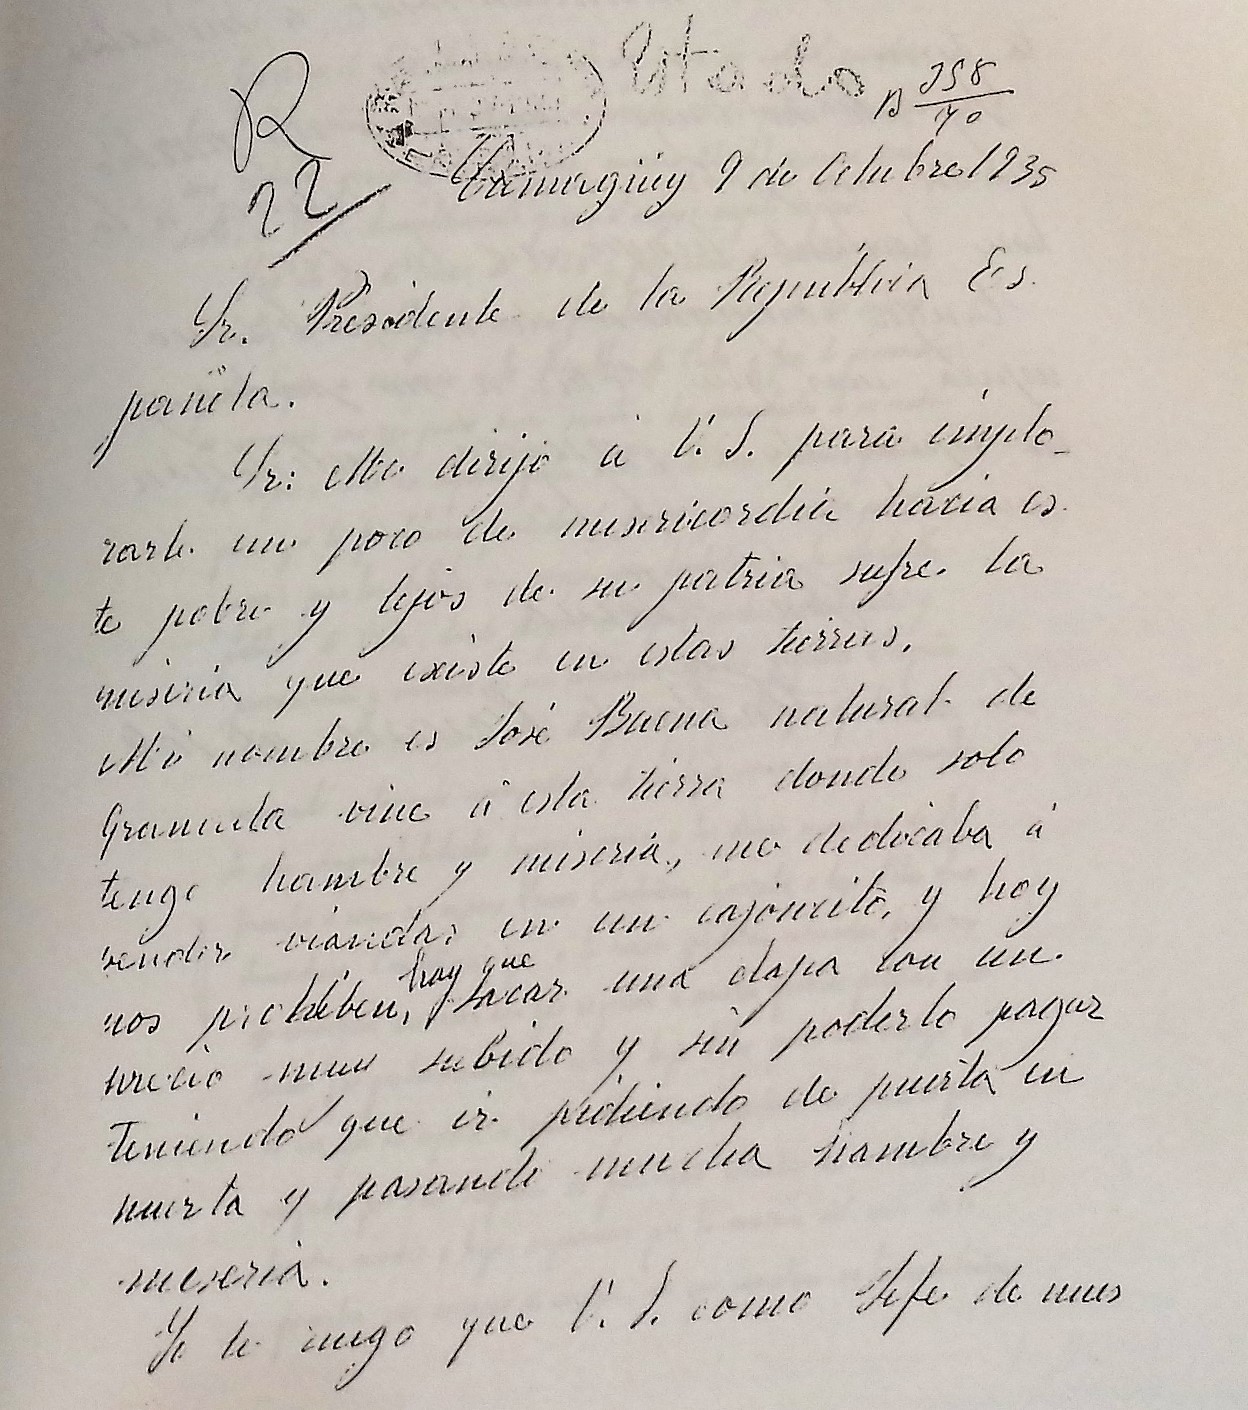 R
22
Estado
B 358
40
Camagüey 9 de Octubre 1935
Sr. Presidente de la República Es.
pañola.
Sr: Me dirijo á V. S. para implo_
rarle un poco de misericordia hacia es.
te pobre y lejos de su patria sufre la
miseria que existe en estas tierras.
Mi nombre es José Baena natural de
Granada vine á esta tierra donde solo
tengo hambre y miseria, me dedicaba á
vender viandas en un cajoncito, y hoy
nos prohiben, hay que sacar una chapa con un
precio muy subido y sin poderlo pagar
teniendo que ir pidiendo de puerta en
puerta y pasando mucha hambre y
miseria.
Yo le ruego que V. S. como Jefe de nues